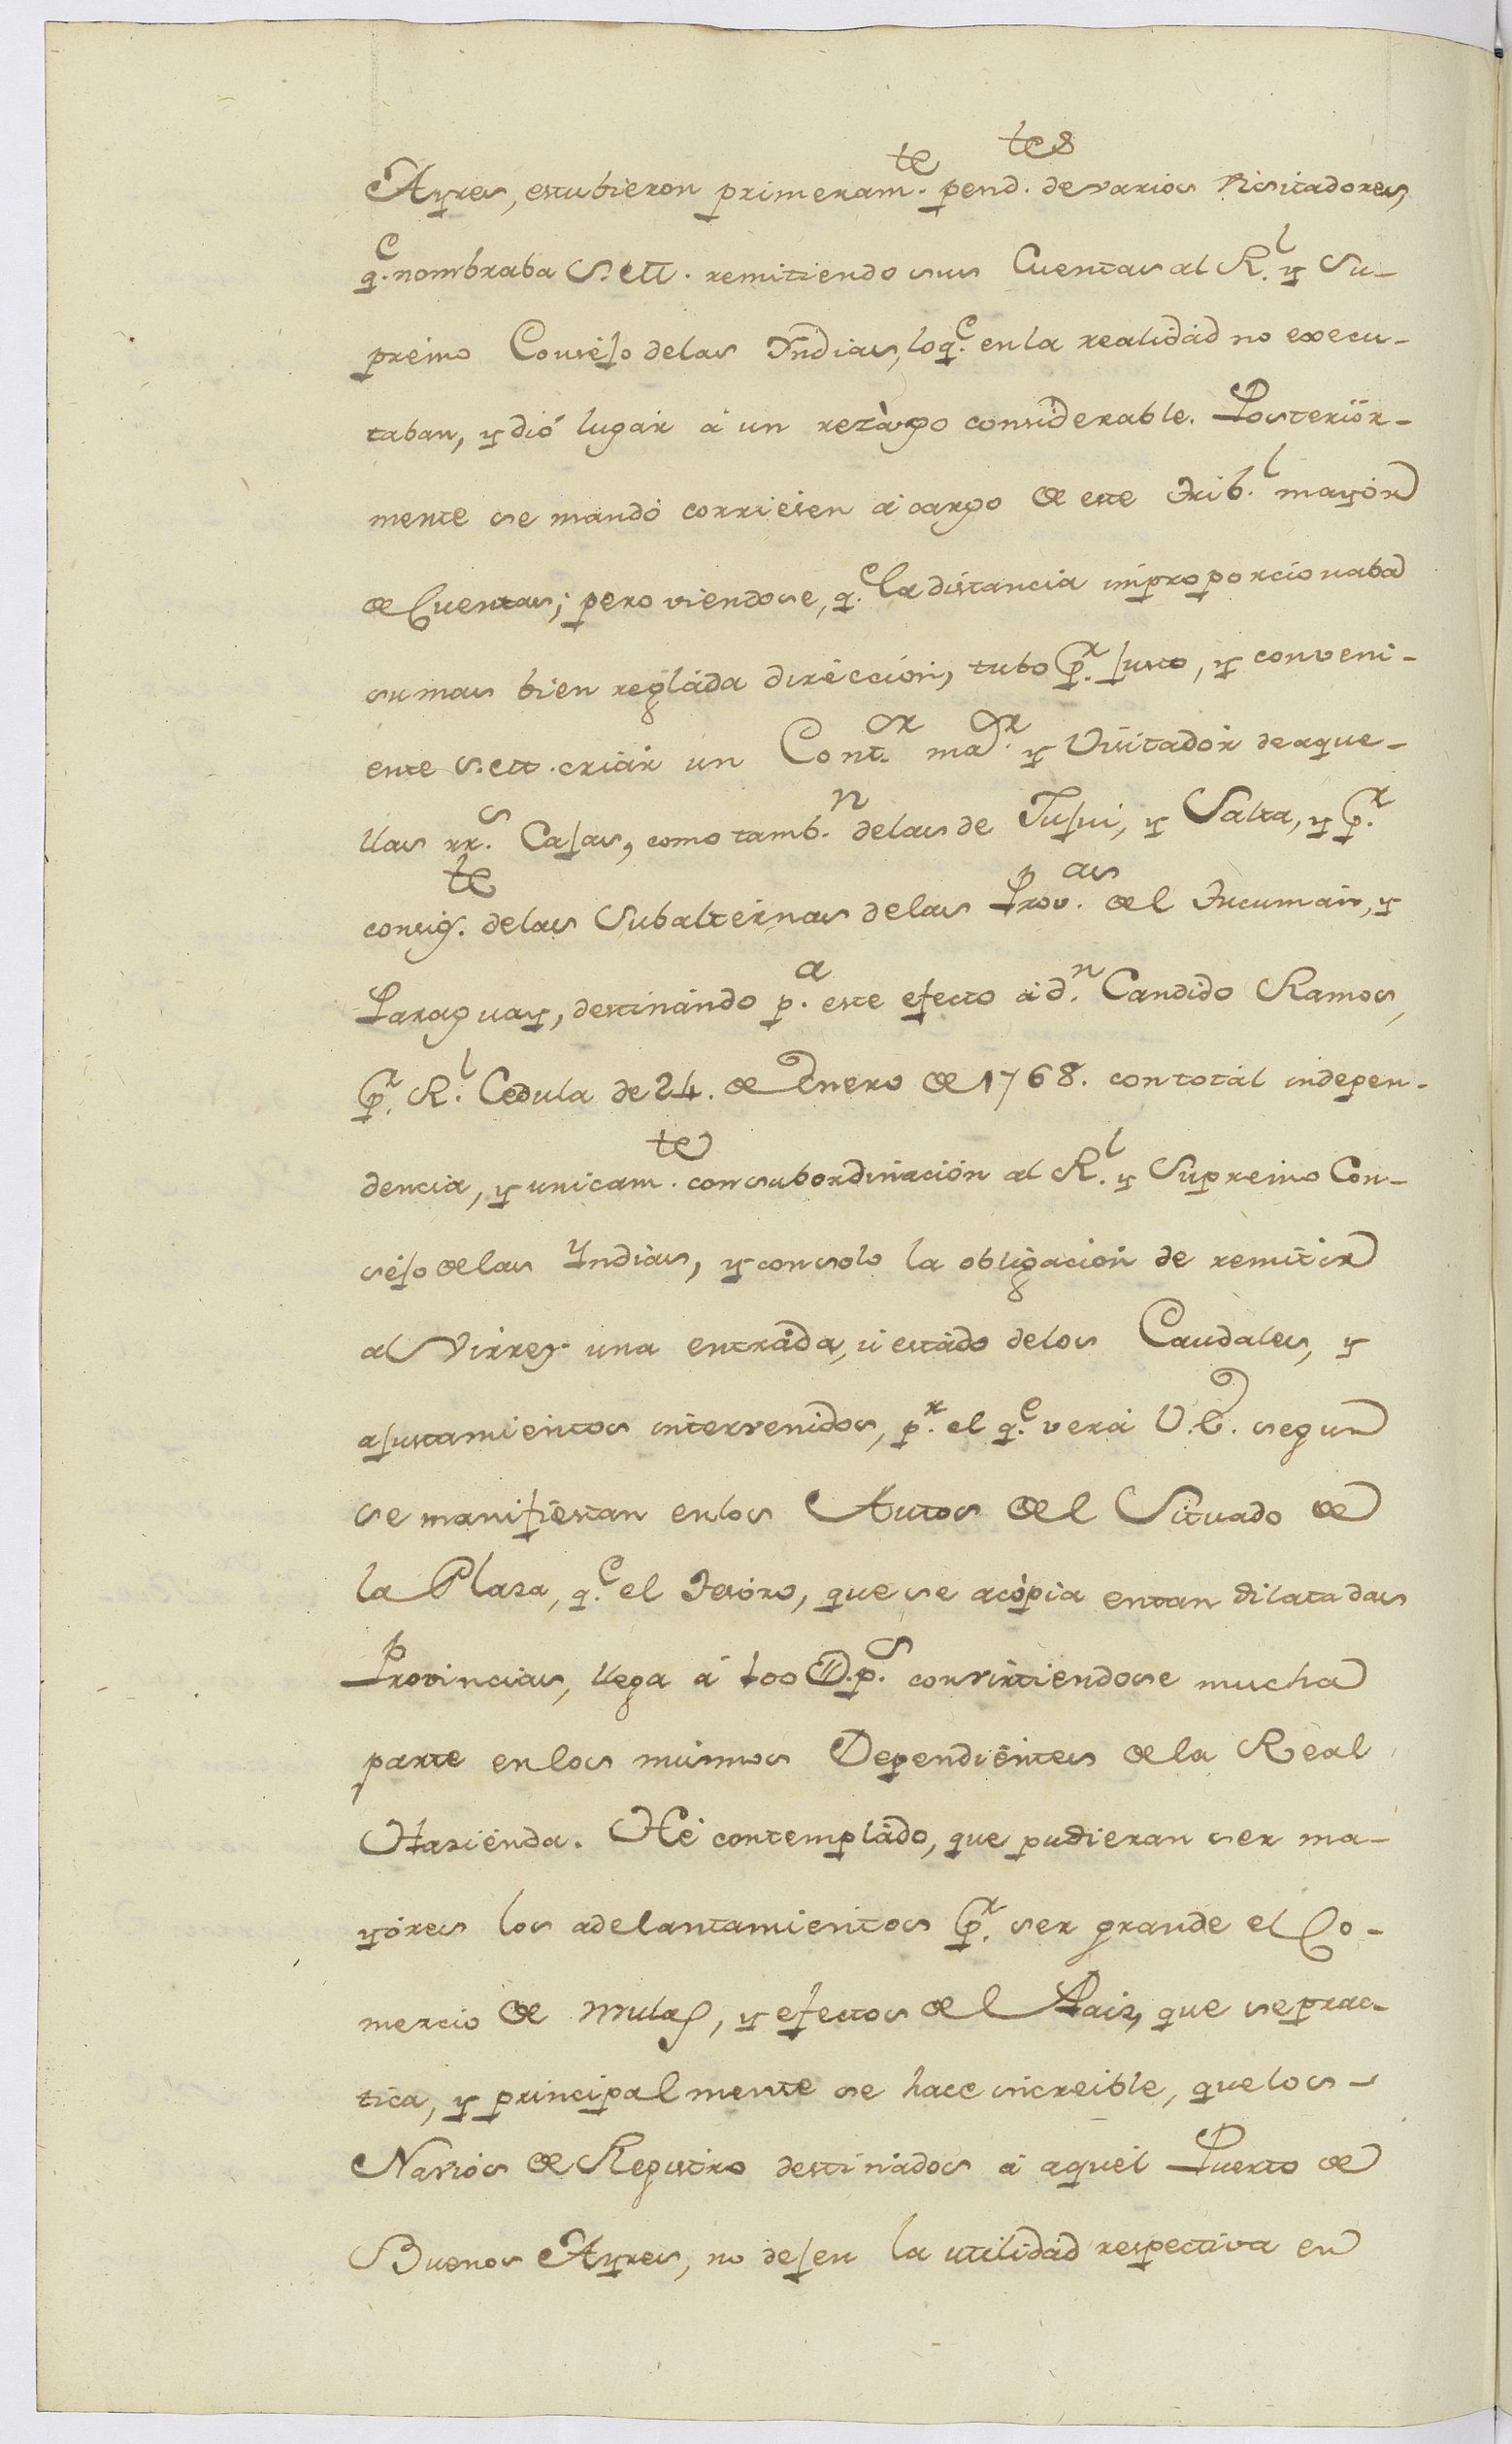 Ayres, estubieron primeram.te pend.tes de varios Visitadores,
q.e nombraba S.M. remitiendo sus Cuentas al R.l y Su-
premo Consejo delas Yndias, loq.e en la realidad no execu-
taban, y dió lugar á un rezàgo considerable. Posterior-
mente se mandó corriesen á cargo de este Trib.l mayor
de Cuentas; pero viendose, q.e la distancia improporcionaba
su mas bien reglada dirección, tubo p.r justo, y conveni-
ente S.M. criár un Cont.or ma.or y Visitadór de aque-
llas rr.s Cajas, como tamb.n delas de Jujui, y Salta, y p.r
consig.te delas Subalternas delas Prov.as del Tucumán, y
Paraguay, destinándo p.a este efecto á d.n Candido Ramos,
p.r R.l Cedula de 24. de Enero de 1768. con totál indepen-
dencia, y unicam.te con subordinación al R.l y Supremo Con-
séjo delas Yndias, y con solo la obligación de remitir
al Virrey una entráda, ú estádo delos Caudales, y
ajustamientos intervenidos, p.r el q.e verá V.E. segun
se manifiestan enlos Autos del Situado de
la Plaza, q.e el Tesóro, que se acópia entan dilatadas
Provincias, llega á 100 D.p.s convirtiendose mucha
parte enlos mismos Dependiéntes dela Real
Hazienda. Hé contempládo, que pudieran ser ma-
yóres los adelantamientos p.r ser grande el Co-
mercio de Mulas, y efectos del Pais, que se prac-
tica, y principalmente se hace increible, que los
Navíos de Registro destinádos á aquél Puerto de
Buenos Ayres, no dejen la utilidad respectiva en